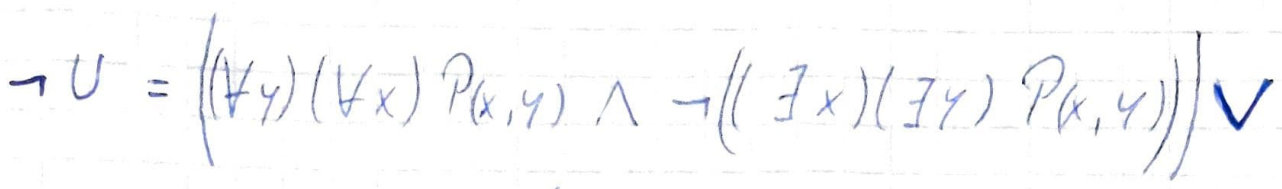 ¬U = ((∀y)(∀x) P(x,y) ∧ ¬((∃x)(∃y) P(x,y))) ∨